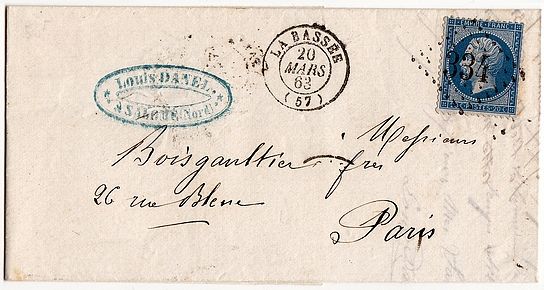 LA BASSÉE
20
MARS
63
(57)
EMPIRE FRANC
334
Louis DANEL
(Nord)
Messieurs
Boisgaultier frres
26 rue Bleue
Paris